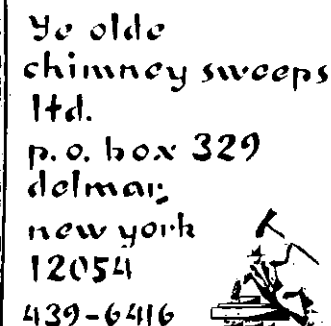 Ye olde
chimney sweeps
ltd.
p.o. box 329
delmar,
new york
12054
439-6416